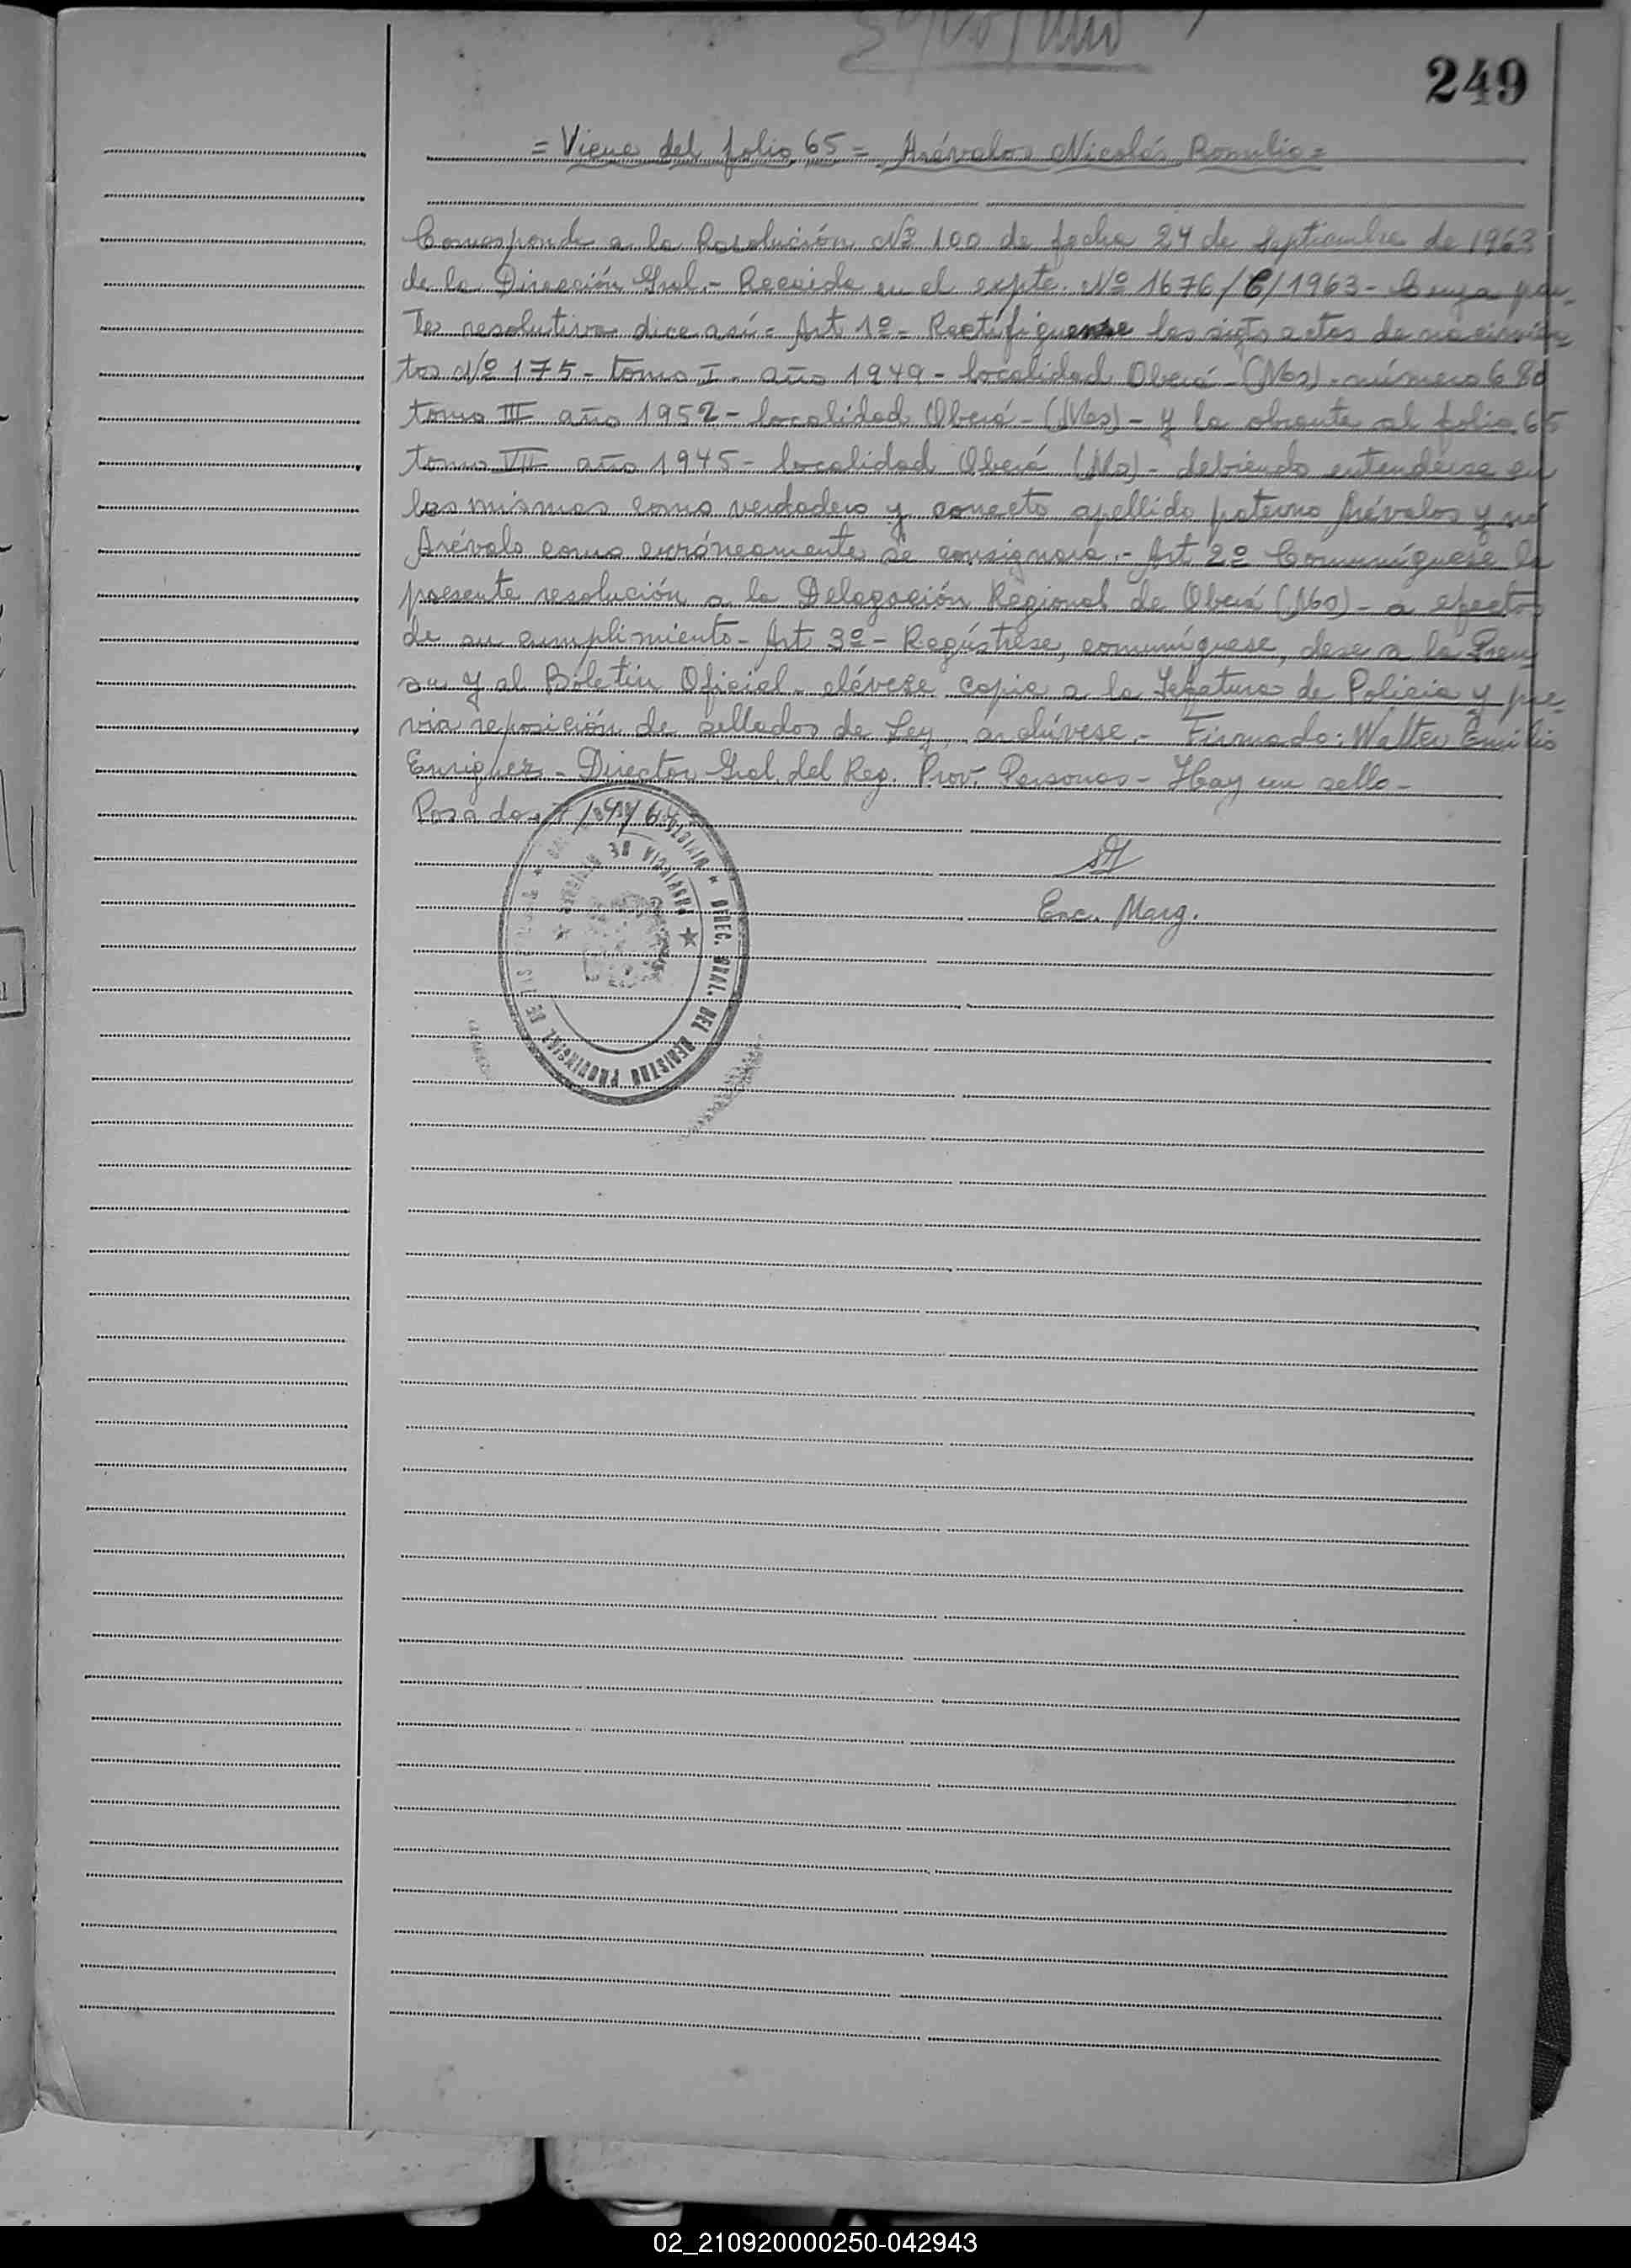 249
= Viene del folio 65 = Arévalos Nicolás Romulio =
Corresponde a la Resolución Nº 100 de fecha 24 de Septiembre de 1963
de la Dirección Gral.- Recaida en el expte. Nº 1676/C/1963 - Cuya par-
te resolutiva dice así = Art 1º - Rectifiquense las sigts actas de nacimien-
tos Nº 175 - tomo I - año 1949 - localidad Oberá - (Mos) - número 680
tomo III año 1952 - localidad Oberá - (Mos) - y la obrante al folio 65
tomo VII año 1945 - localidad Oberá (Mos) - debiendo entenderse en
las mismas como verdadero y correcto apellido paterno Arévalos y no
Arévalo como erróneamente se consignara.- Art 2º Comuníquese la
presente resolución a la Delegación Regional de Oberá (Mos) - a efectos
de su cumplimiento - Art 3º - Regístrese, comuníquese, dese a la Pren
sa y al Boletín Oficial - elévese copia a la Jefatura de Policia y pre-
via reposición de sellados de Ley, archívese.- Firmado: Walter Emilio
Enriquez - Director Gral del Reg. Prov. Personas - Hay un sello -
Posadas
Enc. Marg.
DIREC. GRAL. DEL REGISTRO PROVINCIAL DE
PROVINCIA DE MISIONES
02_210920000250-042943